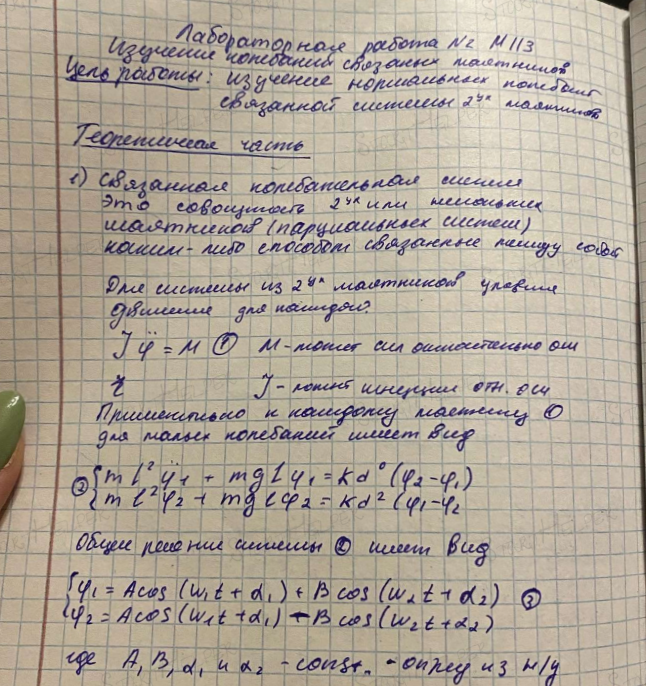 Лабораторная работа №2 М113
Изучение колебаний связаных маятников
Цель работы: изучение нормальных колебаний
связанной системы 2ух маятников
Теоретическая часть
1) Связанная колебательная система
это совокупность 2ух или нескольких
маятников (парциальных систем)
каким-либо способом связанные между собой
Для системы из 2ух маятников уравнение
движение для каждого.
Jφ̈ = M ① M - момет сил относительно оси
J - момент инерции отн. оси
Применительно к каждому маятнику ①
для малых колебаний имеет вид
② { ml²φ̈₁ + mglφ₁ = kd² (φ₂-φ₁)
ml²φ̈₂ + mglφ₂ = kd² (φ₁-φ₂
Общее решение системы ② имеет вид
{ φ₁ = Acos (ω₁t + α₁) + Bcos (ω₂t + α₂) ③
φ₂ = Acos (ω₁t + α₁) - Bcos (ω₂t + α₂)
где A, B, α₁ и α₂ - const. - опред из н/у